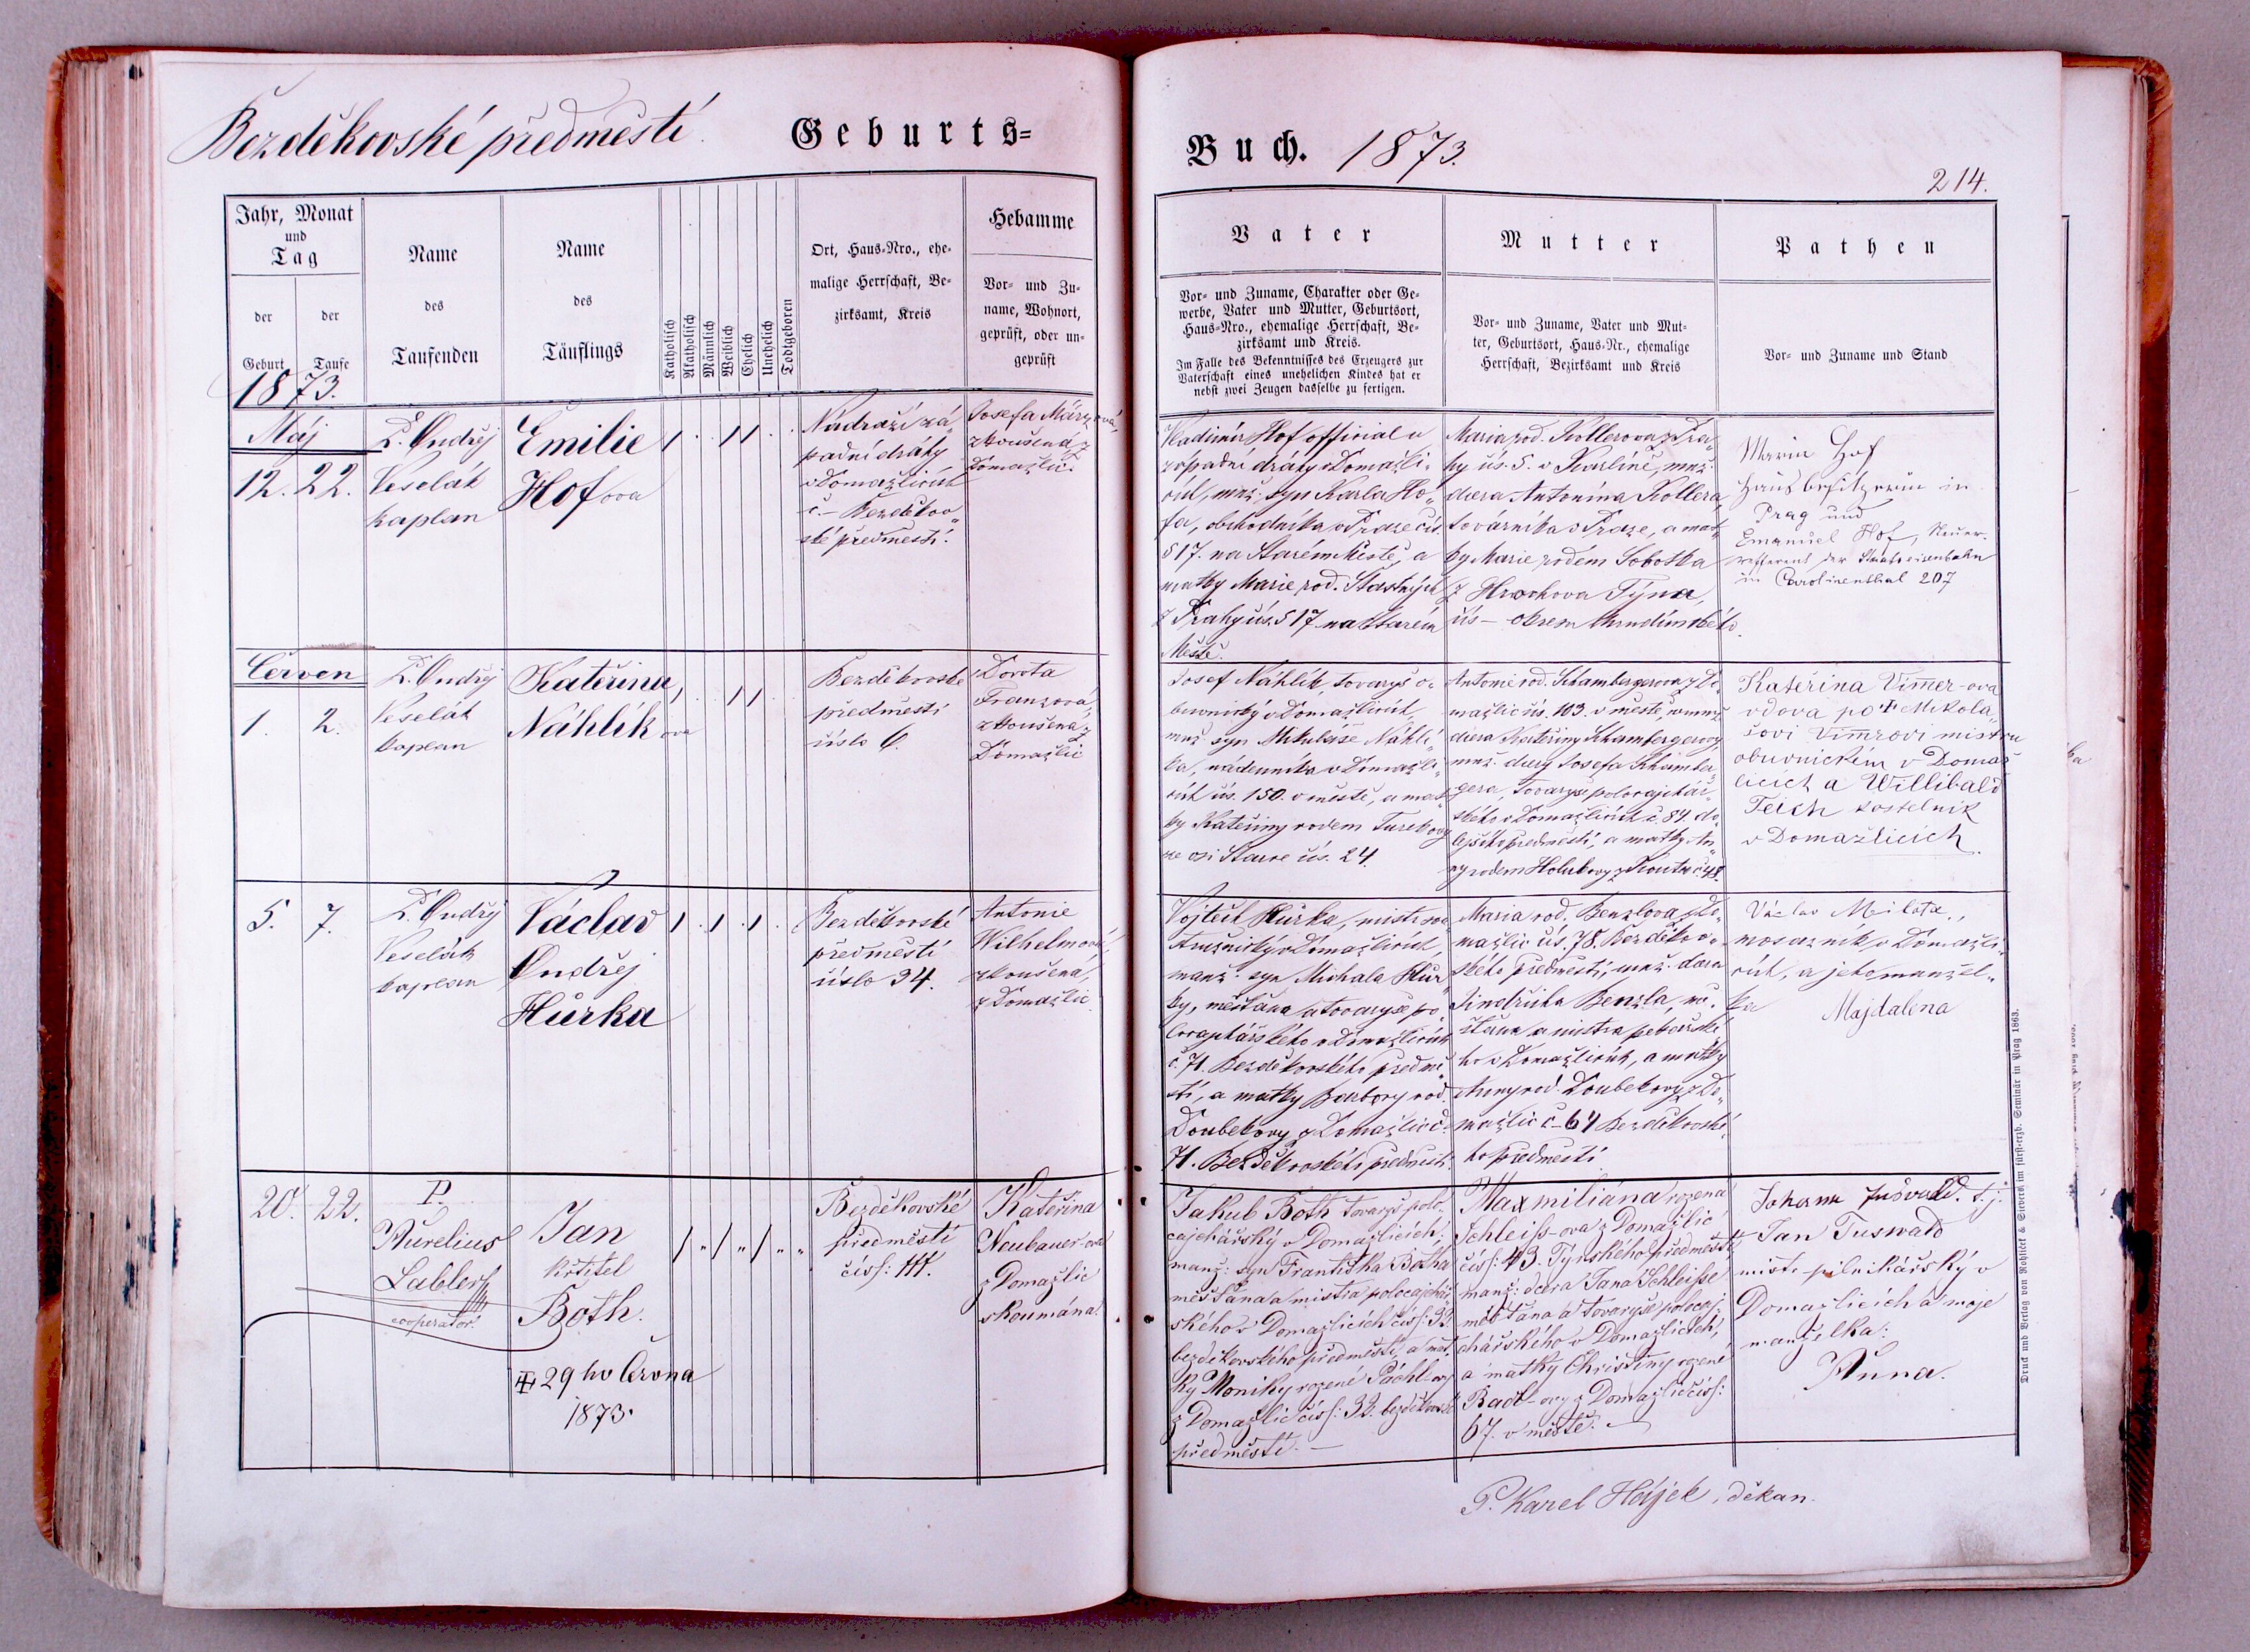 Bezděkovské předměstí. Geburts=
Buch. 1873.
214.
Jahr, Monat
und
Tag
der
Geburt
der
Taufe
Name
des
Taufenden
Name
des
Täuflings
Katholisch
Akatholisch
Männlich
Weiblich
Ehelich
Unehelich
Todtgeboren
Ort, Haus-Nro., ehe-
malige Herrschaft, Be-
zirksamt, Kreis
Hebamme
Vor- und Zu-
name, Wohnort,
geprüft, oder un-
geprüft
Vater
Vor- und Zuname, Charakter oder Ge-
werbe, Vater und Mutter, Geburtsort,
Haus-Nro., ehemalige Herrschaft, Be-
zirksamt und Kreis.
Im Falle des Bekenntnisses des Erzeugers zur
Vaterschaft eines unehelichen Kindes hat er
nebst zwei Zeugen dasselbe zu fertigen.
Mutter
Vor- und Zuname, Vater und Mut-
ter, Geburtsort, Haus-Nr., ehemalige
Herrschaft, Bezirksamt und Kreis
Pathen
Vor- und Zuname und Stand
1873.
Máj
12. 22.
P. Ondřej
Veselák
kaplan
Emilie
Hofova
Nádraží zá„
padní dráhy
v Domažlicích
č.– Bezděkov„
ské předměstí.
Josefa Märzová,
zkoušená z
Domažlic.
Vladimír Hof official u
západní dráhy v Domažli„
cích, manž. syn Karla Ho„
fa, obchodníka v Praze čís.
517. na Starém Městě, a
matky Marie rod. Šťastných
z Prahy čís. 517 na Starém
Městě.
Maria rod. Kollerova z Pra„
hy čís. 5. v Karlíně, manž.
dcera Antonína Kollera,
továrníka v Praze, a mat„
ky Marie rodem Sobotka
z Hrochova Týna,
čís – okresu chrudímského.
Maria Hof
Hausbesitzerin in
Prag und
Emanuel Hof,
der Staatseisenbahn
in Carolinenthal 207
Červen
1. 2.
P. Ondřej
Veselák
kaplan
Kateřina,
Náhlíkova
Bezděkovské
předměstí
číslo 6.
Dorota
Franzová,
zkoušená z
Domažlic
Josef Náhlík, tovaryš o„
buvnický v Domažlicích,
manž. syn Mikuláše Náhlí„
ka, nádenníka v Domažli„
cích čís. 150. v městě, a mat„
ky Kateřiny rodem Turekovy
ze vsi Stanse čís. 24.
Antonie rod. Schambergerova z Do„
mažlic čís. 103. v městě, nemanž.
dcera Kateřiny Schambergerovy,
manž. dcery Josefa Schamber„
gera, tovaryše polocajkář„
ského v Domažlicích č. 84. do„
lejšího předměstí, a matky An„
ny rodem Holubovy z Koutu č. 48.
Kateřina Vimmer-ova
vdova po † Mikolá„
šovi Vimrovi mistru
obuvnickém v Domaž
licích a Willibald
Teich kostelník
v Domažlicích.
5. 7.
P. Ondřej
Veselák
kaplan
Václav
Ondřej
Hürka
Bezděkovské
předměstí
číslo 34.
Antonie
Wilhelmová,
zkoušená,
z Domažlic.
Vojtěch Hürka, mistr
v Domažlicích,
manž. syn Michala Hür„
ky, měšťana a tovaryše po„
locajkářského v Domažlicích
č. 71. Bezděkovského předmě„
stí, a matky Barbory rod.
Doubekovy z Domažlic č.
71. Bezděkovského předměstí.
Maria rod. Benzlova z Do„
mažlic čís. 78. Bezděkov„
ského předměstí, manž. dcera
Jindřicha Benzla, mě„
šťana a mistra pekařské„
ho v Domažlicích, a matky
Anny rod. Doubekovy z Do„
mažlic č– 64 Bezděkovské„
ho předměstí
Václav Milota,
mosazník v Domažli„
cích, a jeho manžel„
ka
Majdalena
20. 22.
P.
Aurelius
Labler
cooperator.
Jan
křtitel
Both.
29ho Črvna
1873.
Bezděkovské
předměstí
čísl: 111.
Kateřina
Neubauer-ova
z Domažlic
skoumána.
Jakub Both tovaryš polo„
cajchářský v Domažlicích,
manž: syn Františka Botha
měšťana a mistra polocajchář„
ského v Domažlicích čísl: 32.
bezděkovského předměstí, a mat„
ky Moniky rozené Pachl-ovy
z Domažlic čísl: 32. bezděkovské
předměstí. –
Maxmiliána rozená
Schleiss-ova z Domažlic
čísl: 43. Týnského předměstí
manž: dcera Jana Schleisse
měšťana a tovaryše polocaj„
chářského v Domažlicích,
a matky Christiny rozené
Badl-ovy z Domažlic čísl:
67. v městě. –
Johann Tuswald. t. j.
Jan Tuswald
mistr pilníkářský v
Domažlicích a moje
manželka:
Anna.
P. Karel Hájek, děkan.
Druck und Verlag von Rohlicek & Sievers im fürst-erzb. Seminär in Prag 1863.